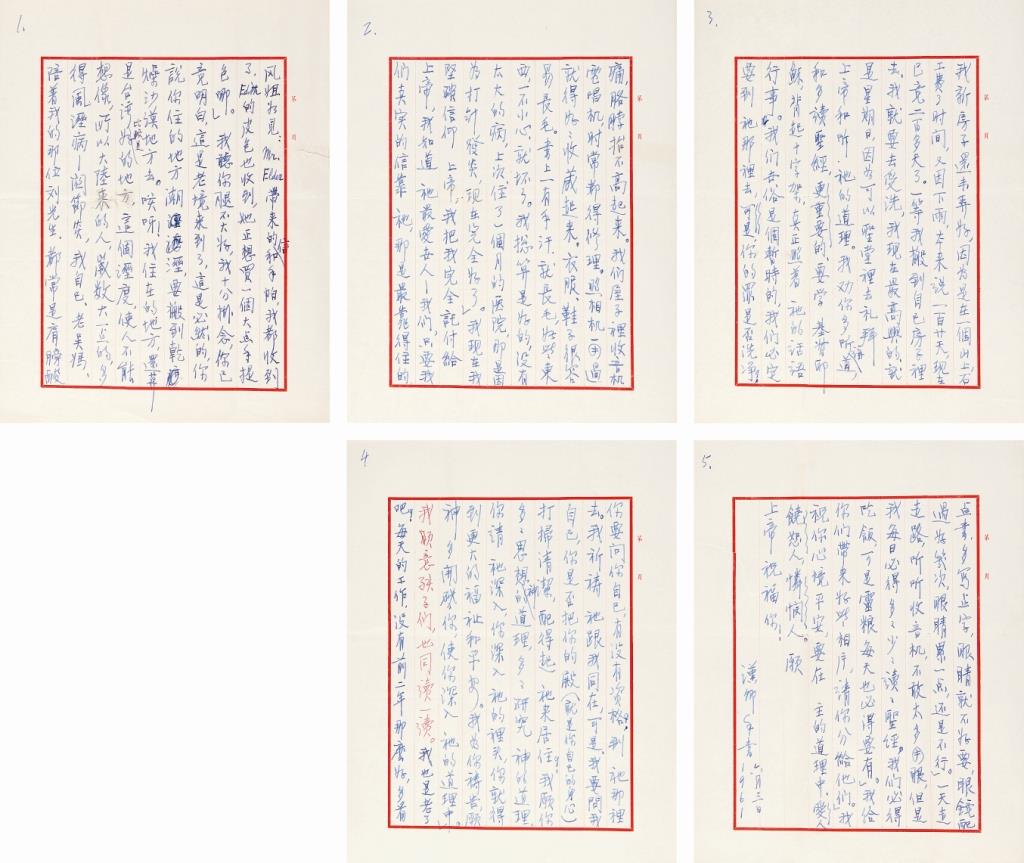 1.
风姐如見：Mr. Elder 帶來的信和手帕，我都收到
了，Elder的皮包也收到，她正想買一個大点手提
包哪。我聽你腿不大好，我十分掛念，你已
竟明白，這是老境來到了，這是必然的，你
說你住的地方潮濕，要搬到乾
燥沙漠地方去。唉呀！我住在的地方還算
是台湾比較好的地方，這個溼度，使人不能
想像，所以大陸來的人，歲數大一点的，多
得風溼病—関節炎，我自己、老吳媽、
陪着我的那位刘先生，都常是肩膀酸
2.
痛，胳脖抬不高起來。我們屋子裡收音机
電唱机时常都得修理，照相机一用过
就得好好收藏起來。衣服、鞋子很容
易長毛。書上一有手汗，就長毛，好些東
西一不小心，就坏了。我总算是好的，没有
太大的病，上次住了一個月的医院，那是因
为打針發炎，現在完全好了。我現在我
堅强信仰 上帝，我把我完全託付给
上帝，我知道 祂最愛女人—我們，只要我
們真实的信靠 祂，那是最靠得住的
3.
我新房子還未弄好，因为是在一個山上，石
工费了时间，又因下雨，本来說一百廿天，現在
已竟二百多天了。一等我搬到自己房子裡
去，我就要去受洗，我現在最高興的，就
是星期日，因为可以聖堂裡去礼拜
上帝和听 祂的道理。我劝你多听道，
和多讀聖經，更重要的，要学 基督耶
穌，背起十字架，真正照着 祂的話語
行事。我們女俗是個暫時的，我們必定
要到 祂那裡去，可是你的罪是否洗净？
4
你要问你自己，有没有資格，到 祂那裡
去。我祈禱 祂跟我同在，可是，我要問我
自己，你是否把你的殿（就是你自己的身心）
打掃清潔，配得起 祂來居住，我願你
多多思想神的道理，多多研究 神的道理，
你請 祂深入你，深入 祂的裡头，你就得
到更大的福祉和平安。我为你禱告，願
神多開啓你，使你深入 祂的道理中，
我願意孩子們，也同讀一讀。我也是老了
吧！每天的工作，没有前二年那麽好，多看
5.
点書，多写点字，眼睛就不好要，眼鏡配
過好幾次，眼睛累一点，还是不行。一天走
走路，听听收音机，不敢太多用眼，但是
我每日必得多多少少讀讀聖經。我們必得
吃飯，可是靈粮每天也必得要有。我给
你們帶來好些相片，请你分給他們。我
祝你心境平安，要在 主的道理中，愛人
饒恕人，憐憫人。願
上帝祝福你！
漢卿手書
六月三日
1961